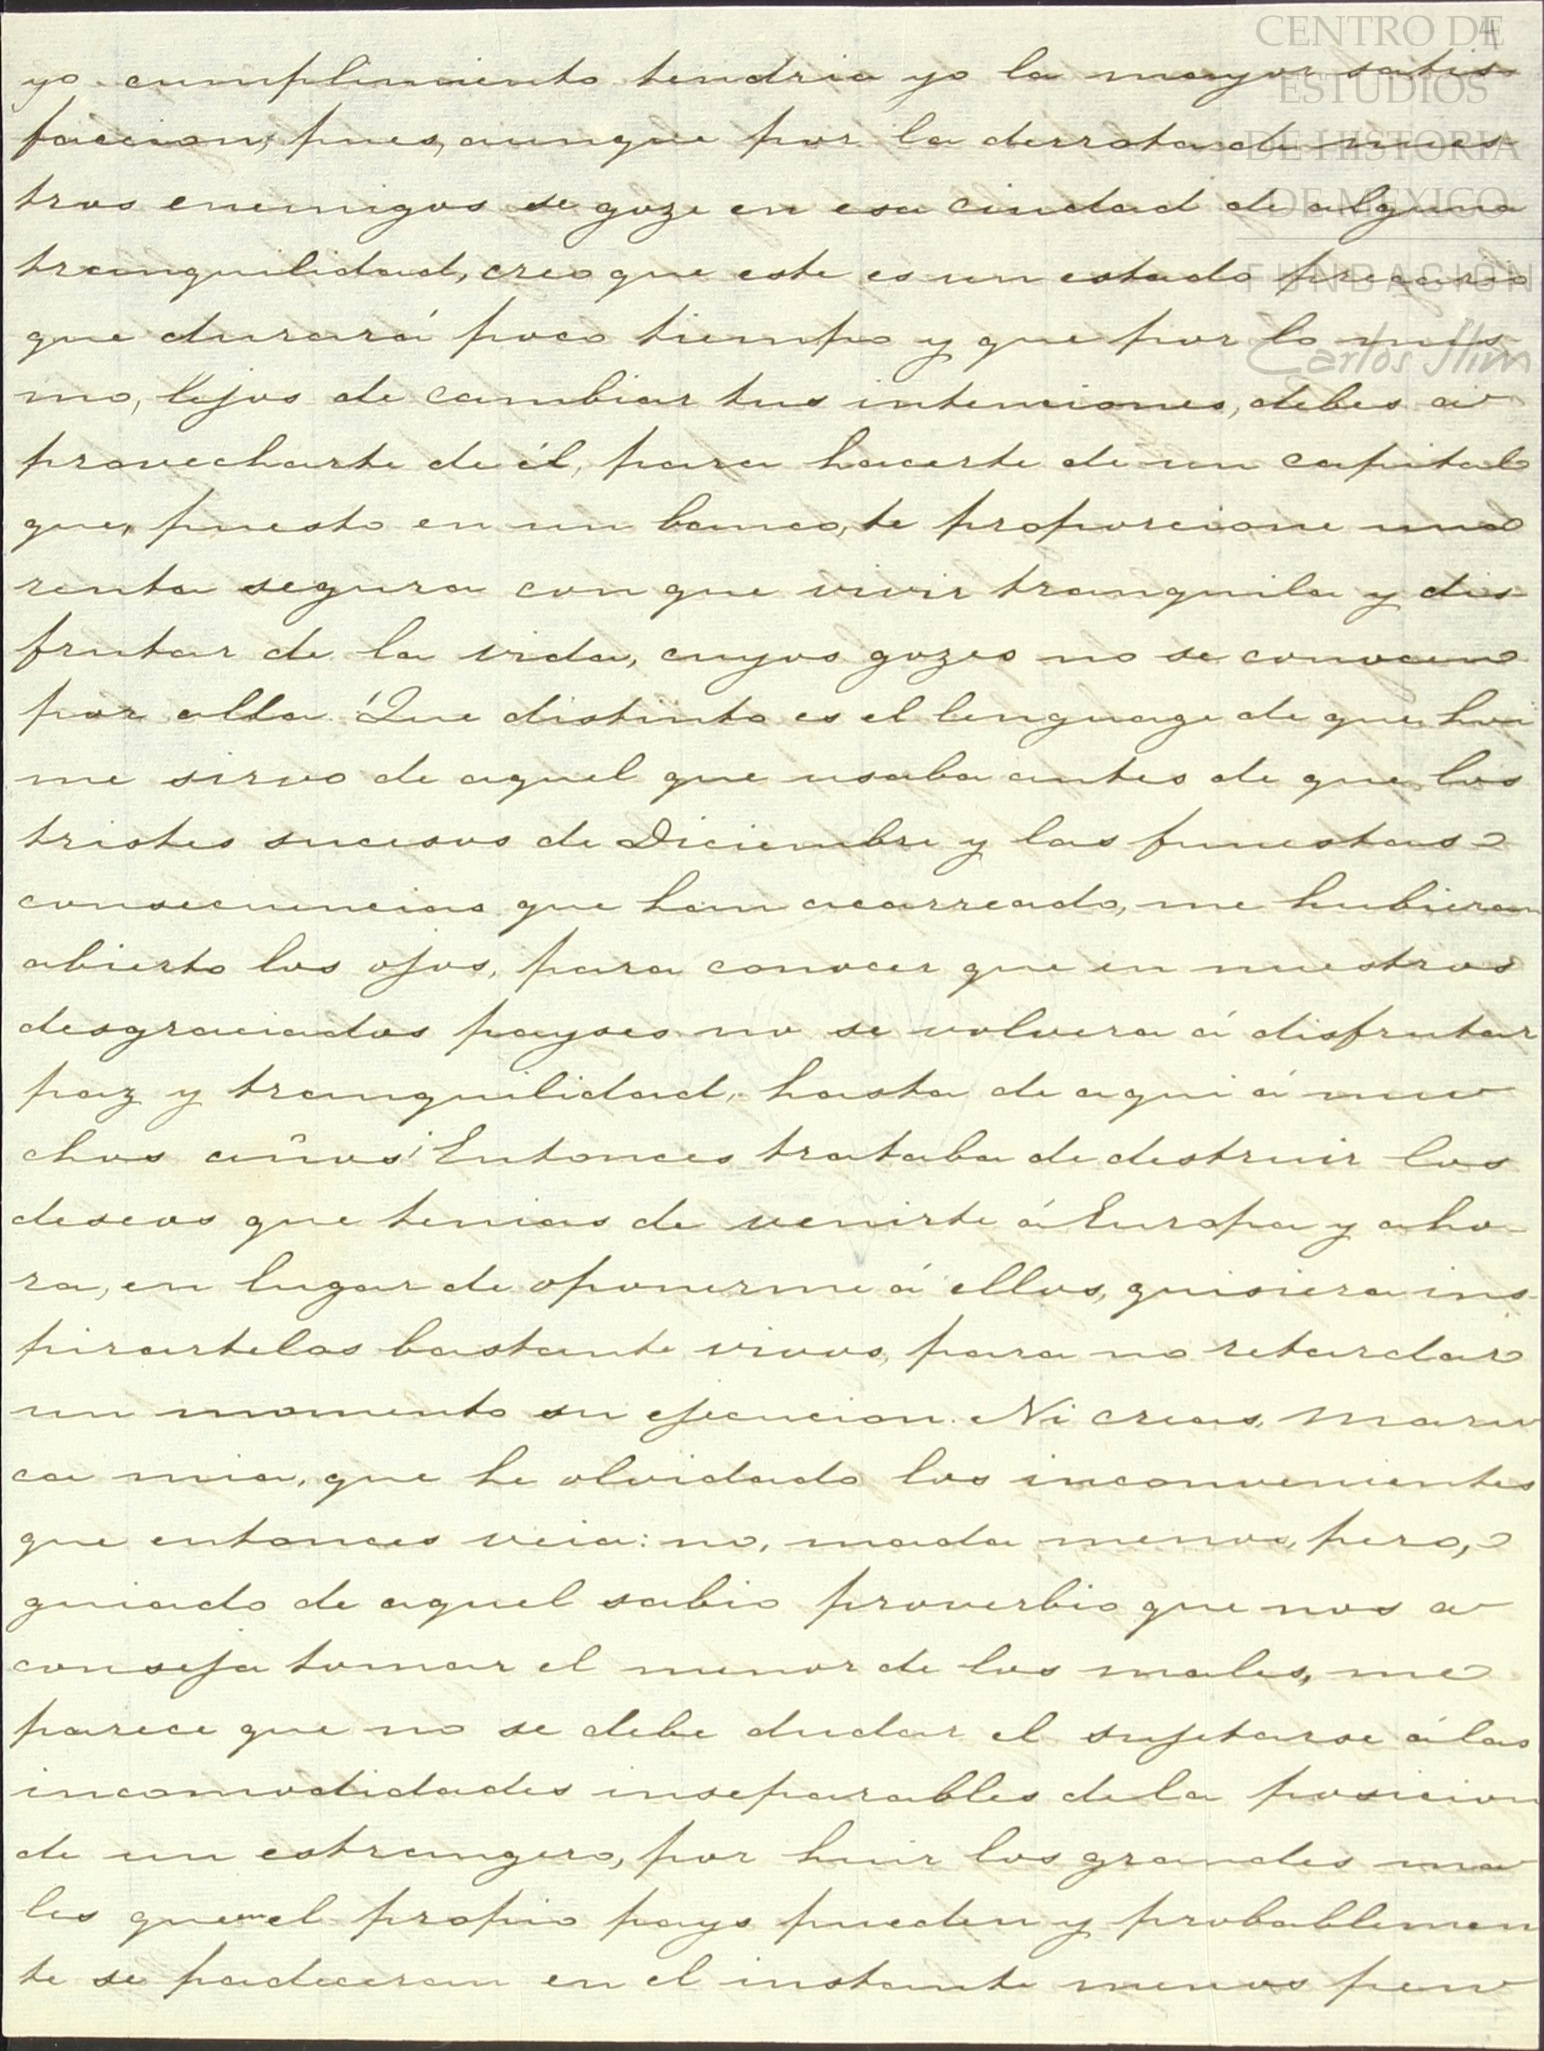 CENTRO DE
ESTUDIOS
DE HISTORIA
DE MEXICO
FUNDACION
Carlos Slim
4
yo cumplimiento tendria yo la mayor satis-
faccion; pues, aunque por la derrota de nues-
tros enemigos se goze en esa ciudad de alguna
tranquilidad, creo que este es un estado precario
que durará poco tiempo y que por lo mis-
mo, lejos de cambiar tus intenciones, debes a-
provecharte de él, para hacerte de un capital
que, puesto en un banco, te proporcione una
renta segura con que vivir tranquila y dis-
frutar de la vida, cuyos gozes no se conocen
por alla. ¡Que distinto es el lenguage de que hoi
me sirvo de aquel que usaba antes de que los
tristes sucesos de Diciembre y las funestas
consecuencias que han acarreado, me hubieran
abierto los ojos, para conocer que en nuestros
desgraciados payses no se volvera á disfrutar
paz y tranquilidad, hasta de aqui á mu-
chos años! Entonces trataba de destruir los
deseos que tenias de venirte á Europa y aho-
ra, en lugar de oponerme á ellos, quisiera ins-
pirartelos bastante vivos, para no retardar
un momento su ejecucion. Ni creas, Maru-
ca mia, que he olvidado los inconvenientes
que entonces veia: no, nada menos, pero,
guiado de aquel sabio proverbio que nos a-
conseja tomar el menor de los males, me
parece que no se debe dudar el sujetarse á las
incomodidades inseparables de la posicion
de un estrangero, por huir los grandes ma-
les que en el propio pays pueden y probablemen-
te se padeceran en el instante menos pen-